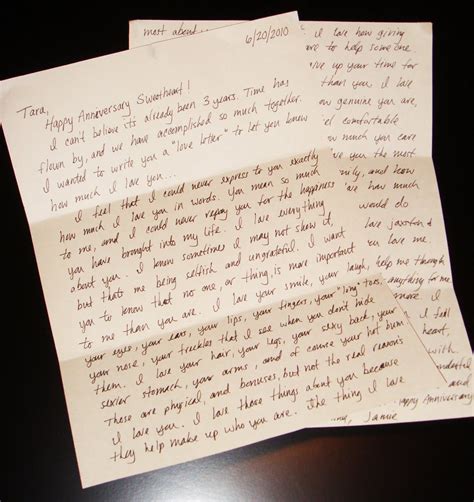 6/20/2010
Tara,
Happy Anniversary Sweetheart!
I can't believe its already been 3 years. Time has
flown by, and we have accomplished so much together.
I wanted to write you a "love letter" to let you know
how much I love you...
I feel that I could never express to you exactly
how much I love you in words. You mean so much
to me, and I could never repay you for the happiness
you have brought into my life. I love everything
about you. I know sometimes I may not show it,
but thats me being selfish and ungrateful. I want
you to know that no one, or thing, is more important
to me than you are. I love your smile, your laugh,
your eyes, your ears, your lips, your fingers, your "long" toes,
your nose, your freckles that I see when you don't hide
them. I love your hair, your legs, your sexy back, your
sexier stomach, your arms, and of course your hot bum.
These are physical, and bonuses, but not the real reasons
I love you. I love those things about you because
they help make up who you are. The thing I love
most about
I love how giving
are to help someone
give up your time for
than you. I love
how genuine you are,
comfortable
much you care
you the most
and know
how much
would do
love jaxston &
love me.
help me through
anything for me
more. I
I feel
heart,
with
Happy Anniversary
Jamie